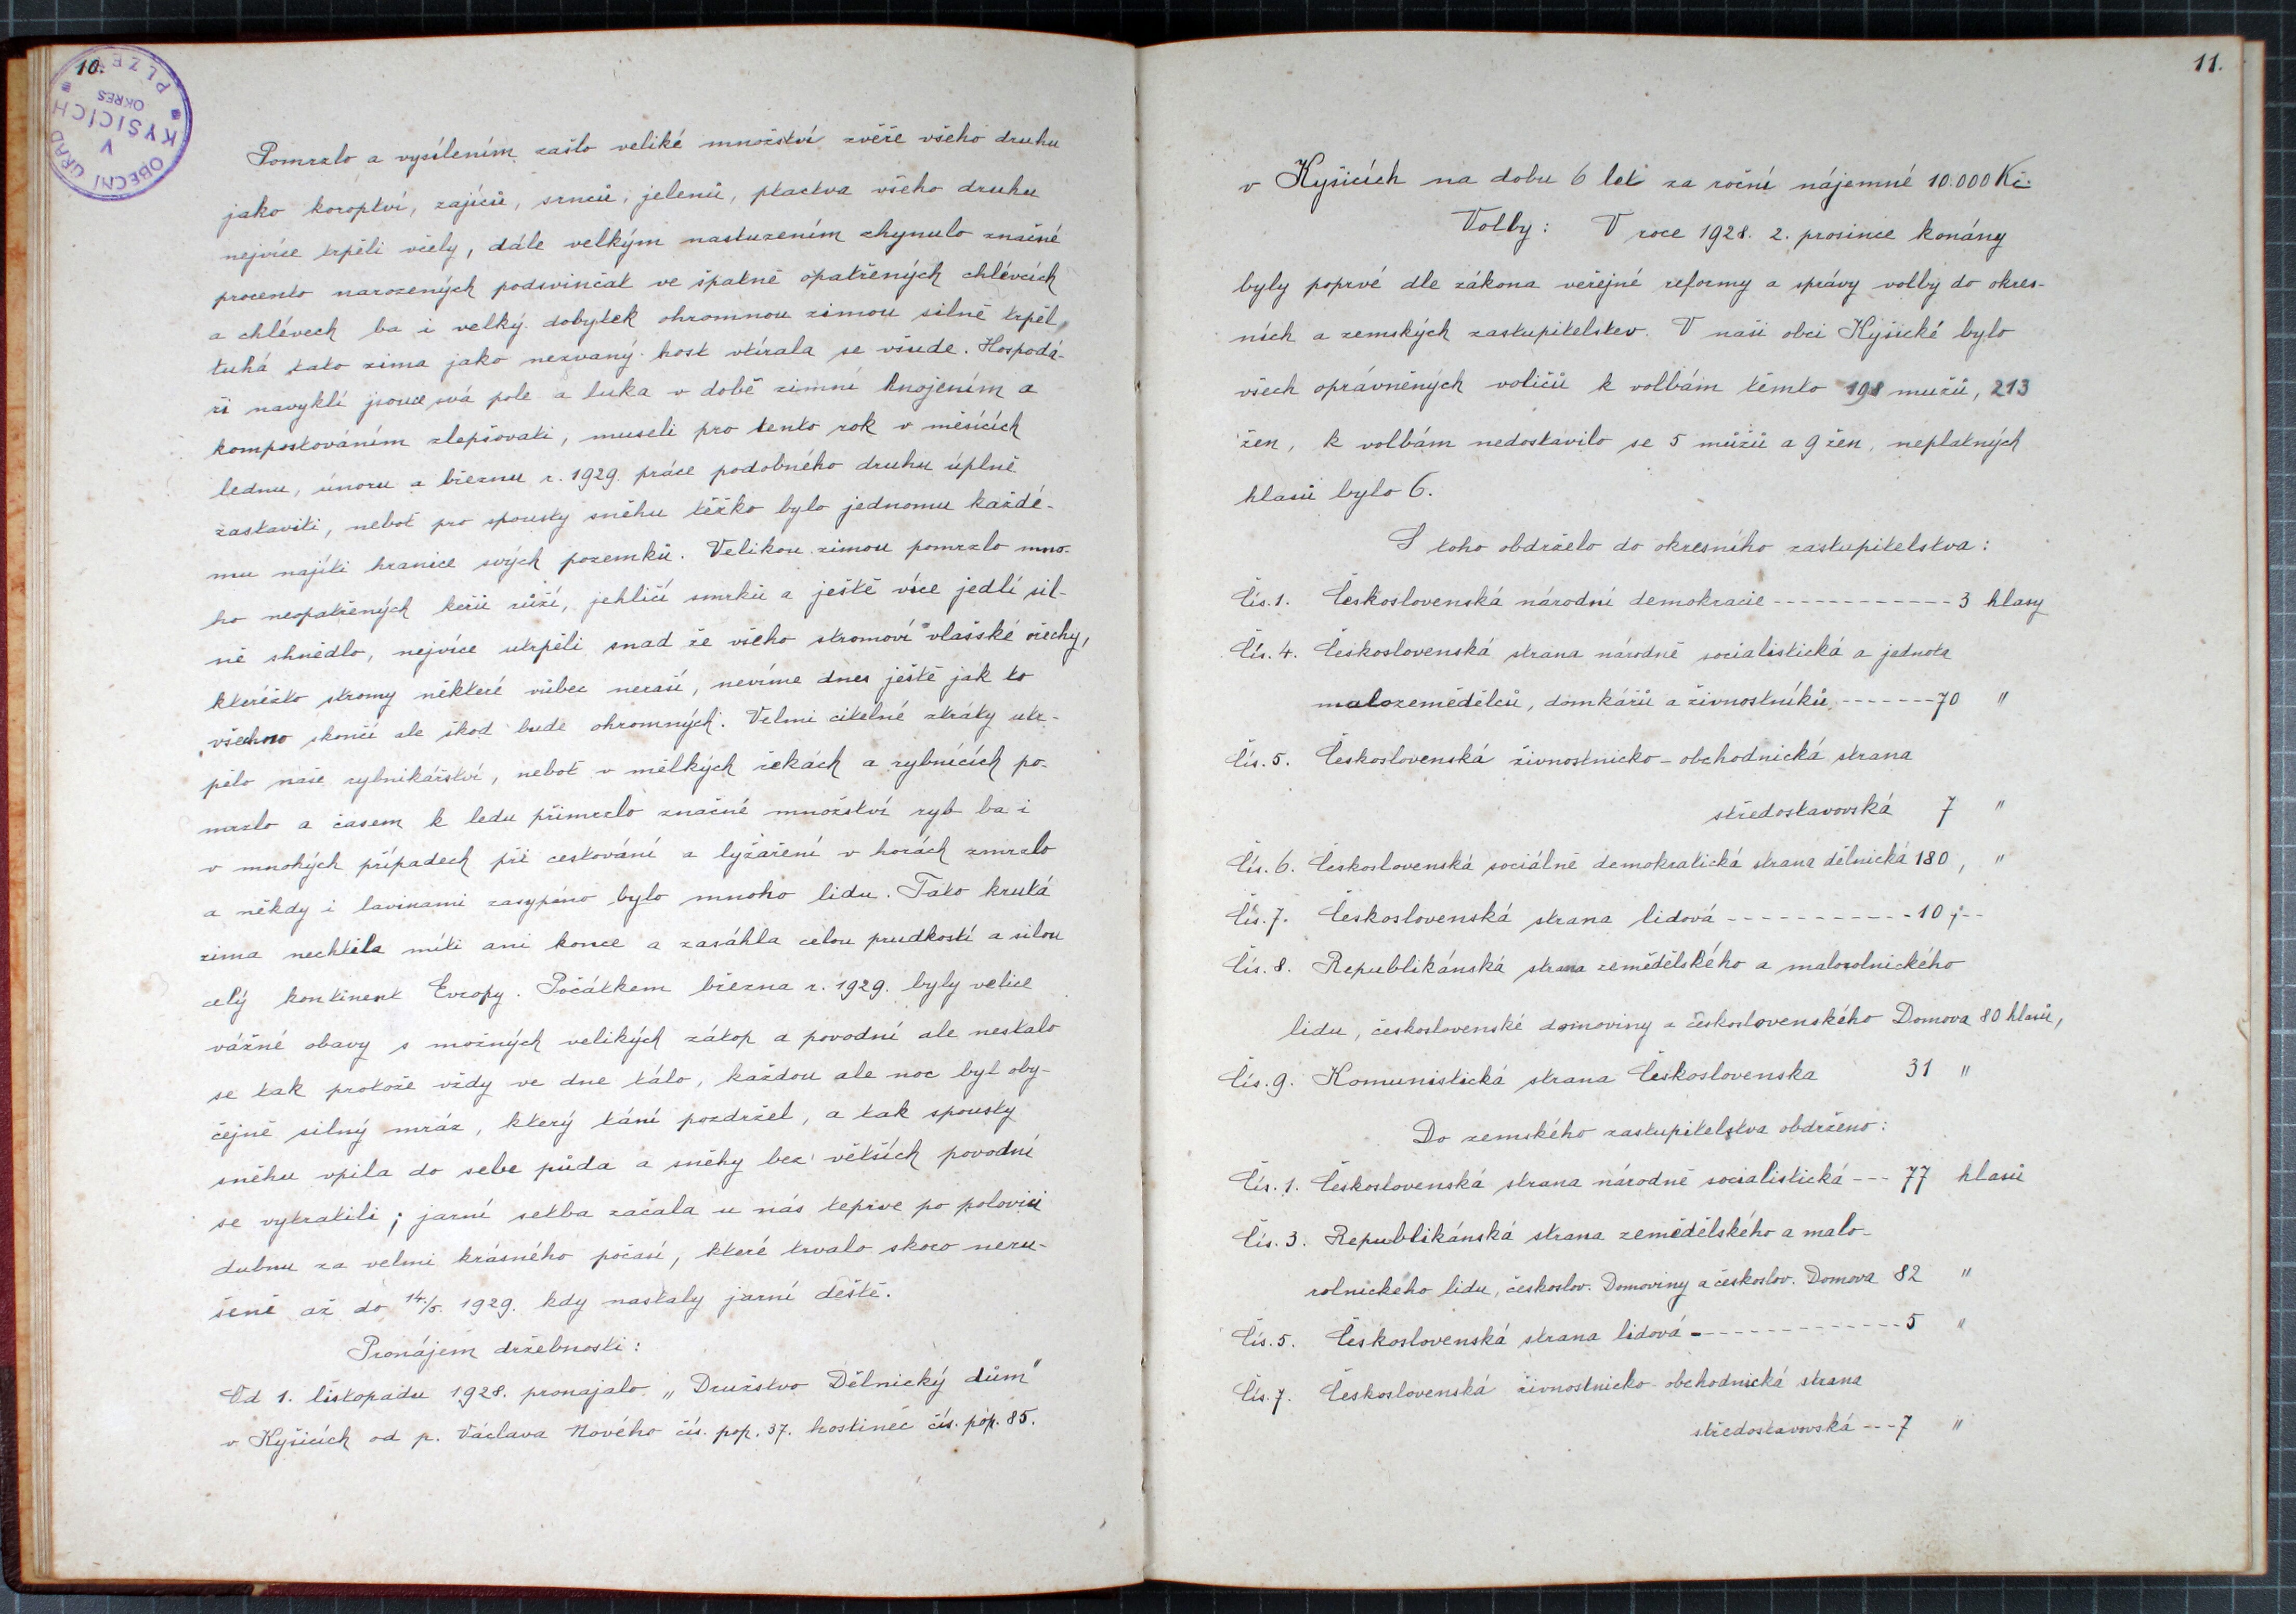 10.
OBECNÍ ÚŘAD
V
KYŠICÍCH
OKRES
PLZEŇ
Pomrzlo a vysílením zašlo veliké množství zvěře všeho druhu
jako koroptví, zajíců, srnců, jelenů, ptactva všeho druhu
nejvíce trpěli včely, dále velkým nastuzením zhynulo značné
procento narozených podsvinčat ve špatně opatřených chlévcích
a chlévech ba i velký dobytek ohromnou zimou silně trpěl,
tuhá tato zima jako nezvaný host vtírala se všude. Hospodá-
ři navyklí jsouce svá pole a luka v době zimní hnojením a
kompostováním zlepšovati, museli pro tento rok v měsících
lednu, únoru a březnu r. 1929. práce podobného druhu úplně
zastaviti, neboť pro spousty sněhu těžko bylo jednomu každé-
mu najíti hranice svých pozemků. Velikou zimou pomrzlo mno-
ho neopatřených keřů růží, jehličí smrků a ještě více jedlí sil-
ně shnědlo, nejvíce utrpěli snad ze všeho stromoví vlašské ořechy,
kterýžto stromy některé vůbec neraší, nevíme dnes ještě jak to
všechno skončí ale škod bude ohromných. Velmi citelné ztráty utr-
pělo naše rybnikářství, neboť v mělkých řekách a rybnících po-
mrzlo a časem k ledu přimrzlo značné množství ryb ba i
v mnohých případech při cestování a lyžaření v horách zmrzlo
a někdy i lavinami zasypáno bylo mnoho lidu. Tato krutá
zima nechtěla míti ani konce a zasáhla celou prudkostí a silou
celý kontinent Evropy. Počátkem března r. 1929. byly velice
vážné obavy s možných velikých zátop a povodní ale nestalo
se tak protože vždy ve dne tálo, každou ale noc byl oby-
čejně silný mráz, který tání pozdržel, a tak spousty
sněhu vpila do sebe půda a sněhy bez větších povodní
se vytratili; jarní setba začala u nás teprve po polovici
dubnu za velmi krásného počasí, které trvalo skoro neru-
šeně až do 14./5. 1929. kdy nastaly jarní deště.
Pronájem držebnosti:
Od 1. listopadu 1928. pronajalo „Družstvo Dělnický dům"
v Kyšicích od p. Václava Nového čís. pop. 37. hostinec čís. pop. 85.
11.
v Kyšicích na dobu 6 let za roční nájemné 10.000 Kč.
Volby: V roce 1928. 2. prosince konány
byly poprvé dle zákona veřejné reformy a správy volby do okres-
ních a zemských zastupitelstev. V naši obci Kyšické bylo
všech oprávněných voličů k volbám těmto 198 mužů, 213
žen, k volbám nedostavilo se 5 můžů a 9 žen, neplatných
hlasů bylo 6.
S toho obdrželo do okresního zastupitelstva:
Čís. 1. Československá národní demokracie ------------ 3 hlasy
Čís. 4. Československá strana národně socialistická a jednota
malozemědělců, domkářů a živnostníků ------- 70 "
Čís. 5. Československá živnostnicko-obchodnická strana
středostavovská 7 "
Čís. 6. Československá sociálně demokratická strana dělnická 180, "
Čís. 7. Československá strana lidová ------------ 10 ;--
Čís. 8. Republikánská strana zemědělského a malorolnického
lidu, československé domoviny a československého Domova 80 hlasů,
Čís. 9. Komunistická strana Československa 31 "
Do zemského zastupitelstva obdrženo:
Čís. 1. Československá strana národně socialistická --- 77 hlasů
Čís. 3. Republikánská strana zemědělského a malo-
rolnického lidu, českoslov. Domoviny a českoslov. Domova 82 "
Čís. 5. Československá strana lidová -------------- 5 "
Čís. 7. Československá živnostnicko-obchodnická strana
středostavovská --- 7 "